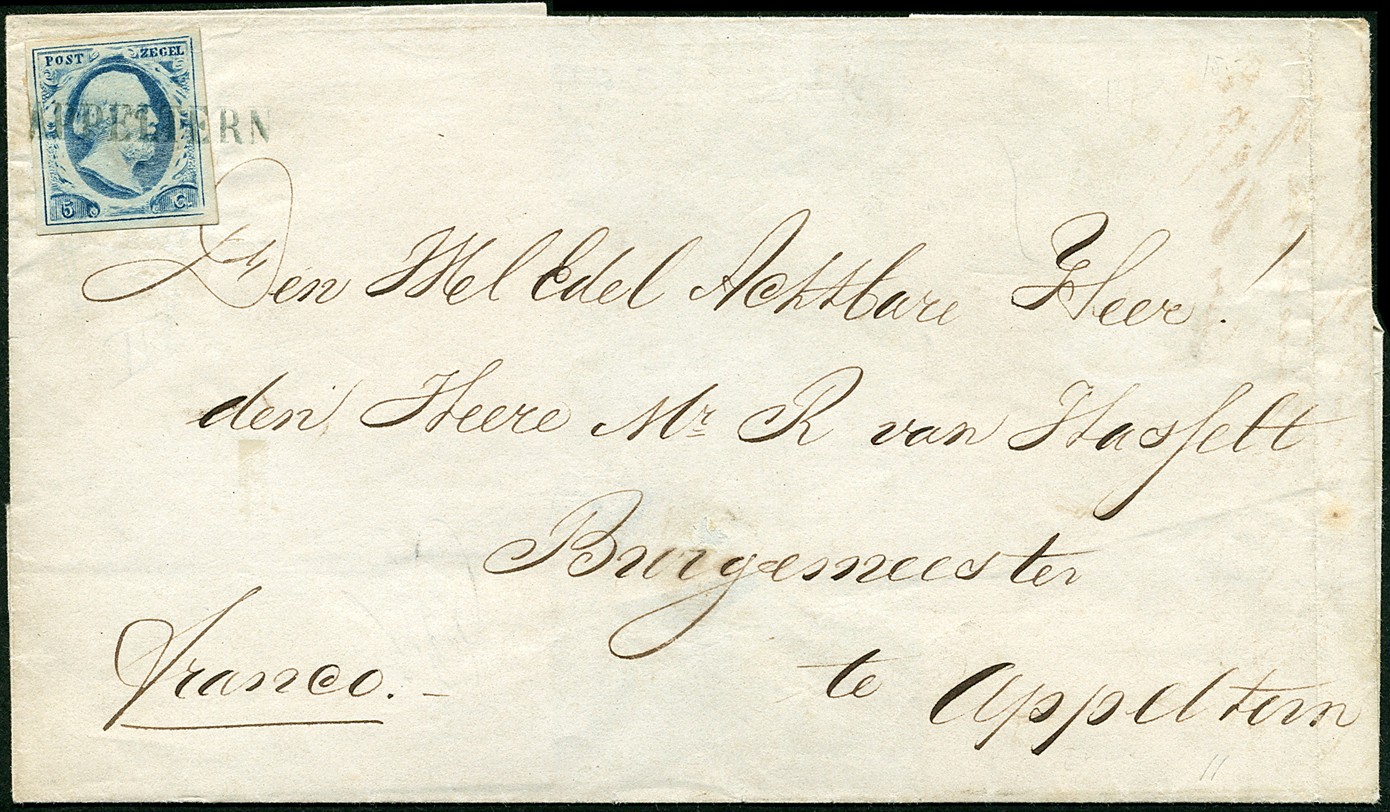 POST ZEGEL
APPELTERN
5 C.
Den Wel Edel Achtbare Heer!
den Heere Mr R van Hasselt
Burgemeester
te Appeltern
franco. -